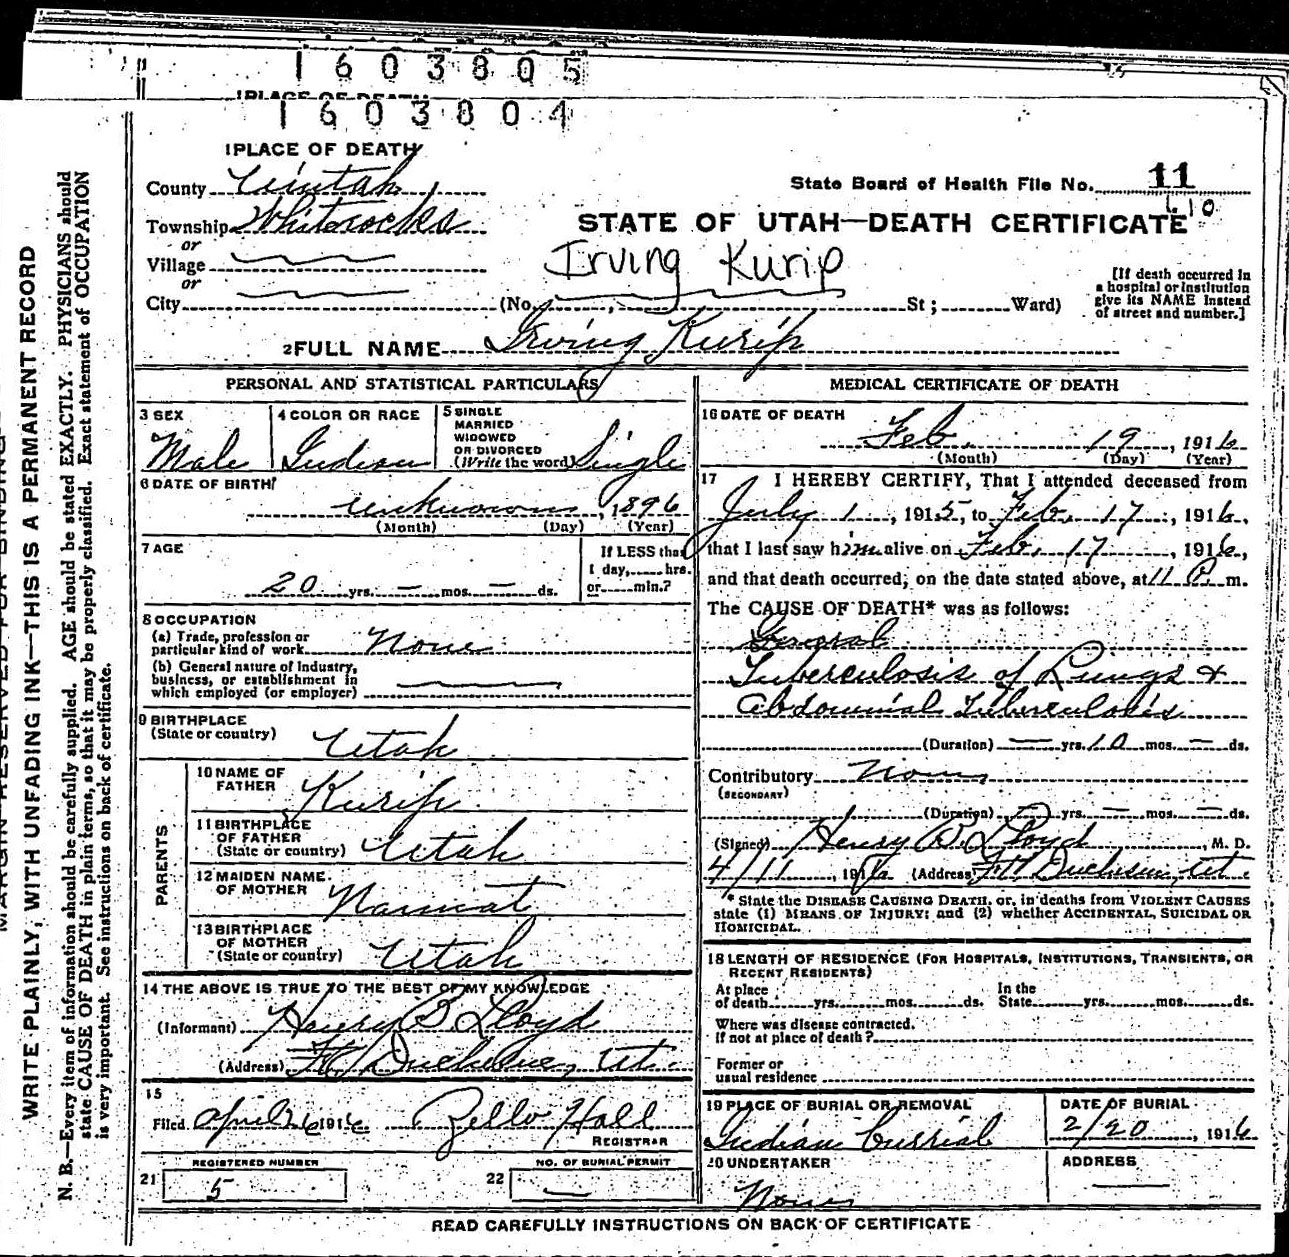 1603805
1 PLACE OF DEATH
1603804
1 PLACE OF DEATH
County Uintah
State Board of Health File No. 11
610
Township Whiterocks
STATE OF UTAH—DEATH CERTIFICATE
or
Village
Irving Kurip
or
City (No. , St ; Ward)
[If death occurred in a hospital or institution give its NAME instead of street and number.]
2 FULL NAME Irving Kurip
PERSONAL AND STATISTICAL PARTICULARS
3 SEX
Male
4 COLOR OR RACE
Indian
5 SINGLE
MARRIED
WIDOWED
OR DIVORCED
(Write the word) Single
6 DATE OF BIRTH
unknown, 1896
(Month) (Day) (Year)
7 AGE
20 yrs. — mos. — ds.
If LESS than
1 day, hrs.
or min.?
8 OCCUPATION
(a) Trade, profession or
particular kind of work None
(b) General nature of industry,
business, or establishment in
which employed (or employer)
9 BIRTHPLACE
(State or country) Utah
PARENTS
10 NAME OF
FATHER Kurip
11 BIRTHPLACE
OF FATHER
(State or country) Utah
12 MAIDEN NAME
OF MOTHER
13 BIRTHPLACE
OF MOTHER
(State or country) Utah
14 THE ABOVE IS TRUE TO THE BEST OF MY KNOWLEDGE
(Informant) Henry B Lloyd
(Address) Ft Duchesne, Ut.
15
Filed April 26 1916 Zello Hall
REGISTRAR
REGISTERED NUMBER
21 5
NO. OF BURIAL PERMIT
22 —
MEDICAL CERTIFICATE OF DEATH
16 DATE OF DEATH
Feb. 19, 1916
(Month) (Day) (Year)
17 I HEREBY CERTIFY, That I attended deceased from
July 1, 1915, to Feb. 17, 1916,
that I last saw him alive on Feb. 17, 1916,
and that death occurred, on the date stated above, at 11 P. m.
The CAUSE OF DEATH* was as follows:
General
Tuberculosis of Lungs &
Abdominal Tuberculosis
(Duration) — yrs. 10 mos. — ds.
Contributory None
(SECONDARY)
(Duration) — yrs. — mos. — ds.
(Signed) Henry B. Lloyd, M. D.
4/11, 1916 (Address) Ft Duchesne, Ut
* State the DISEASE CAUSING DEATH, or, in deaths from VIOLENT CAUSES
state (1) MEANS OF INJURY; and (2) whether ACCIDENTAL, SUICIDAL OR
HOMICIDAL.
18 LENGTH OF RESIDENCE (FOR HOSPITALS, INSTITUTIONS, TRANSIENTS, OR
RECENT RESIDENTS)
At place
of death yrs. mos. ds.
In the
State yrs. mos. ds.
Where was disease contracted,
if not at place of death?
Former or
usual residence
19 PLACE OF BURIAL OR REMOVAL
Indian burrial
DATE OF BURIAL
2/20, 1916
20 UNDERTAKER
None
ADDRESS
—
READ CAREFULLY INSTRUCTIONS ON BACK OF CERTIFICATE
WRITE PLAINLY, WITH UNFADING INK—THIS IS A PERMANENT RECORD
N. B.—Every item of information should be carefully supplied. AGE should be stated EXACTLY. PHYSICIANS should
state CAUSE OF DEATH in plain terms, so that it may be properly classified. Exact statement of OCCUPATION
is very important. See instructions on back of certificate.